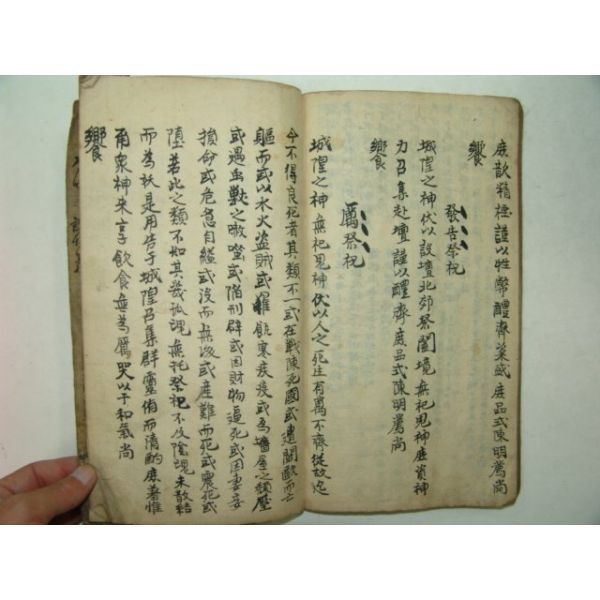 庶歆精禋謹以牲幣醴齊粢盛庶品式陳明薦尚
饗
發告祭祝
城隍之神伏以設壇北郊祭闔境無祀鬼神庶資神
力召集赴壇謹以醴齊庶品式陳明薦尚
饗
厲祭祝
城隍之神無祀鬼神伏以人之死生有萬不齊從古迄
今不得良死者其類不一或在戰陣死國或遭鬪歐而亡
軀而或以水火盜賊或罹飢寒疾疫或為墻屋之頹壓
或遇虫獸之螫噬或陷刑辟或因財物逼死或因妻妾
損命或危急自縊或沒而無後或産難而死或震死或
墮若此之類不知其幾孤魂無托祭祀不及陰魂未散結
而為妖是用告于城隍召集群靈侑而清酌庶羞惟
爾衆神來享飲食無為厲哭以干和氣尚
饗